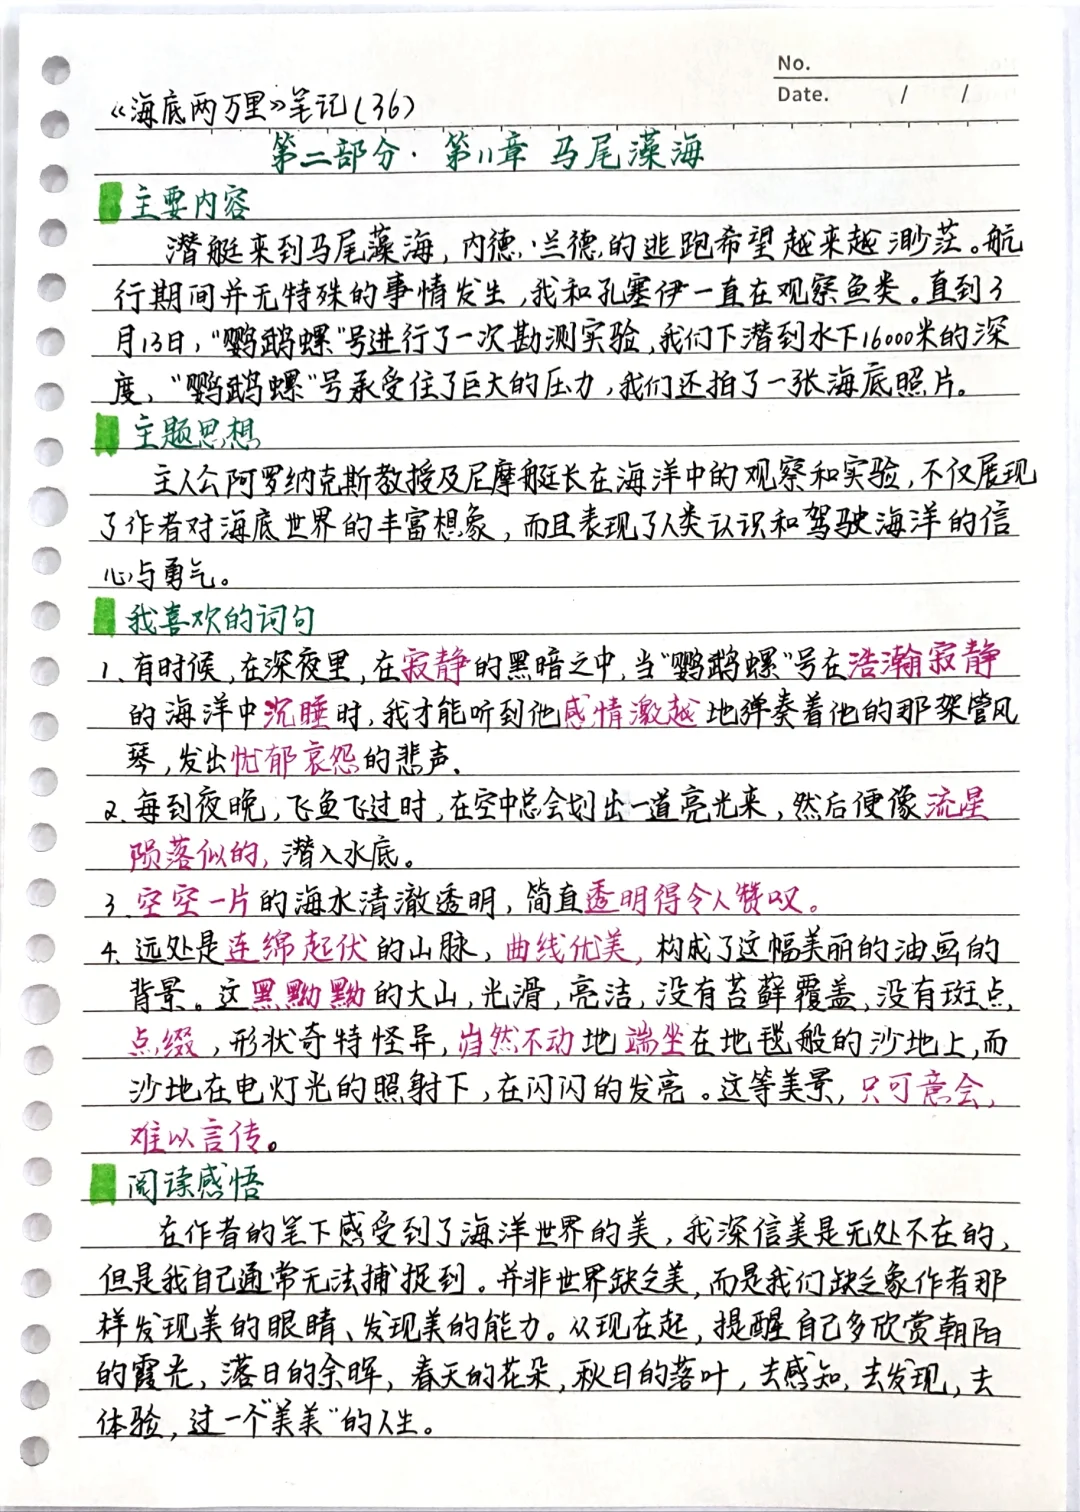 No.
Date. / /
《海底两万里》笔记(36)
第二部分·第11章 马尾藻海
主要内容
潜艇来到马尾藻海，内德·兰德的逃跑希望越来越渺茫。航
行期间并无特殊的事情发生，我和孔塞伊一直在观察鱼类。直到3
月13日，“鹦鹉螺”号进行了一次勘测实验，我们下潜到水下16000米的深
度，“鹦鹉螺”号承受住了巨大的压力，我们还拍了一张海底照片。
主题思想
主人公阿罗纳克斯教授及尼摩艇长在海洋中的观察和实验，不仅展现
了作者对海底世界的丰富想象，而且表现了人类认识和驾驶海洋的信
心与勇气。
我喜欢的词句
1、有时候，在深夜里，在寂静的黑暗之中，当“鹦鹉螺”号在浩瀚寂静
的海洋中沉睡时，我才能听到他感情激越地弹奏着他的那架管风
琴，发出忧郁哀怨的悲声、
2、每到夜晚，飞鱼飞过时，在空中总会划出一道亮光来，然后便像流星
陨落似的，潜入水底。
3、空空一片的海水清澈透明，简直透明得令人赞叹。
4、远处是连绵起伏的山脉，曲线优美，构成了这幅美丽的油画的
背景。这黑黝黝的大山，光滑，亮洁，没有苔藓覆盖，没有斑点，
点缀，形状奇特怪异，岿然不动地端坐在地毯般的沙地上，而
沙地在电灯光的照射下，在闪闪的发亮。这等美景，只可意会，
难以言传。
阅读感悟
在作者的笔下感受到了海洋世界的美，我深信美是无处不在的，
但是我自己通常无法捕捉到。并非世界缺乏美，而是我们缺乏象作者那
样发现美的眼睛、发现美的能力。从现在起，提醒自己多欣赏朝阳
的霞光，落日的余晖，春天的花朵，秋日的落叶，去感知，去发现，去
体验，过一个“美美”的人生。